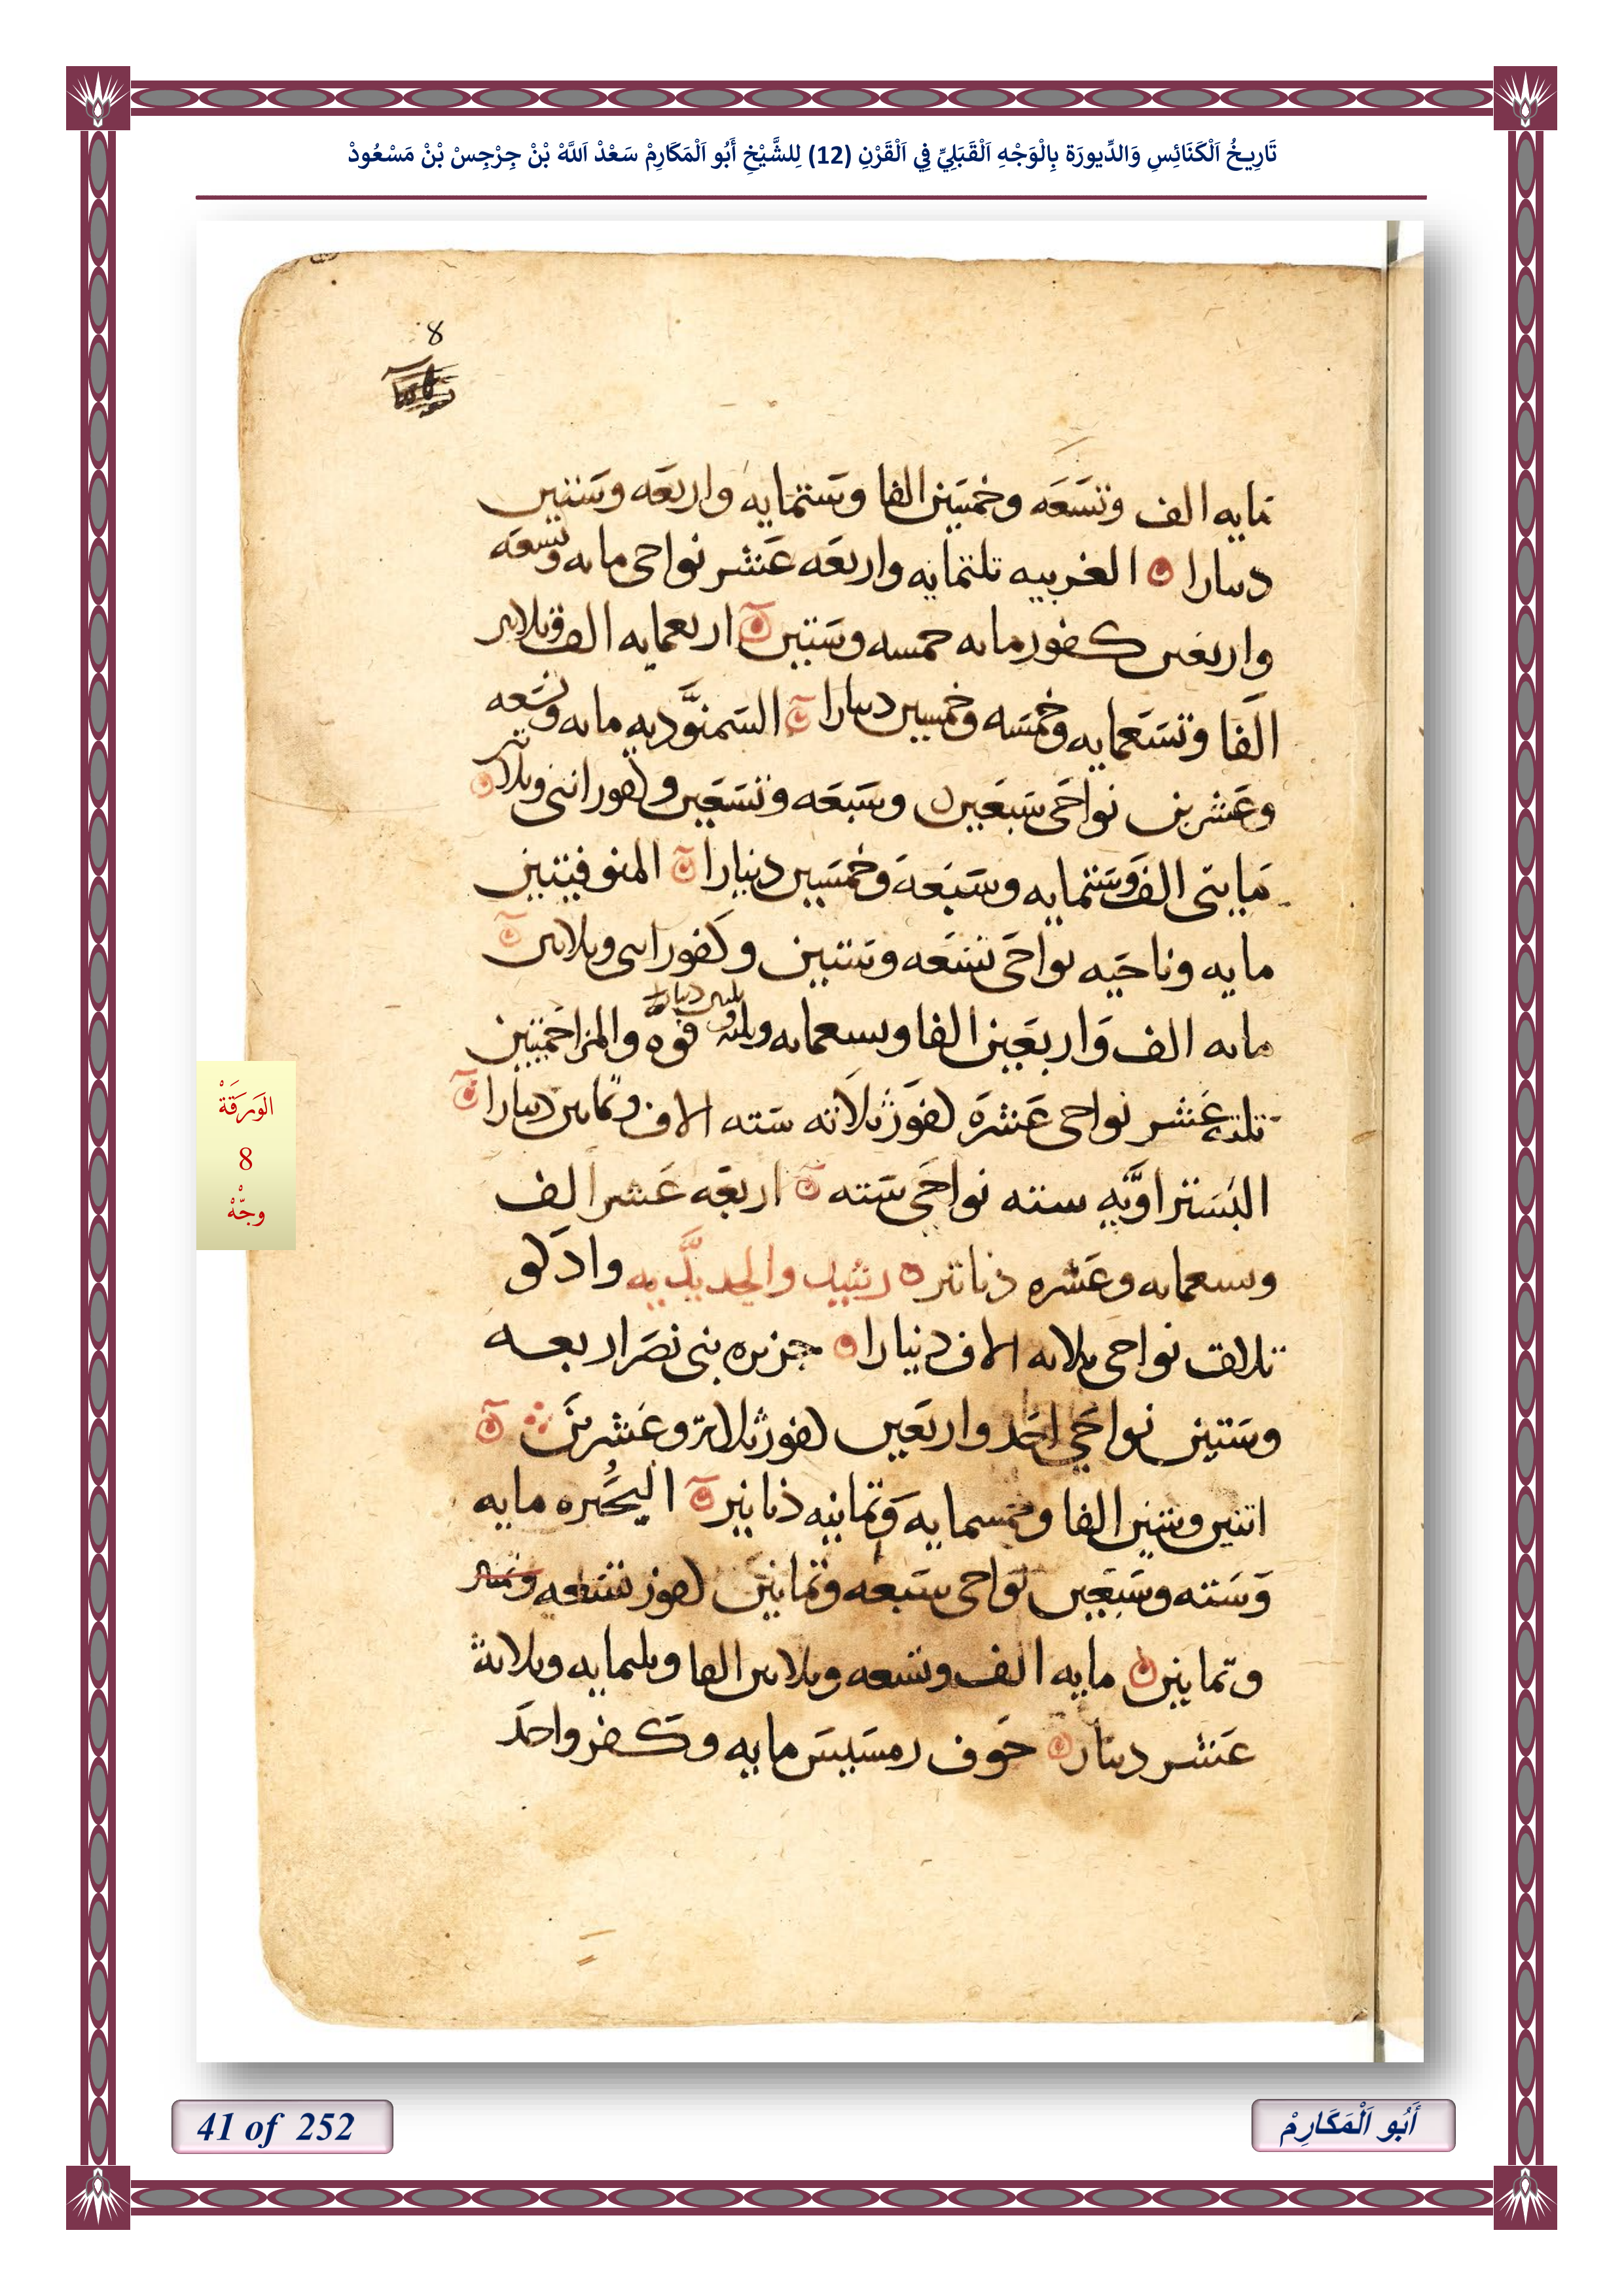 تَارِيخُ اَلْكَنَائِسِ وَالدِّيورَة بِالْوَجْهِ اَلْقَبَلِيِّ فِي اَلْقَرْنِ (12) لِلشَّيْخِ أَبُو اَلْمَكَارِمْ سَعْدْ اَللَّهْ بْنْ جِرْجِسْ بْنْ مَسْعُودْ
8
مايه الف وتسَعَه وخمسَين الفا وسَتمايه واربعَه وسَتين
دينارا الغربيه تلتمايه واربعَه عَشر نواحى مايه وتسعَه
واربعين كفور مايه خمسه وسَتين اربعمايه الف وثلاثين
الفا وتسَعمايه وخمسَه وخمسين دينارا السَمنوَّديه مايه وتسَعه
وعَشرين نواحَى سَبعَين وسَبعَه وتسَعَين وكفور اثنى وثلاثين
مَايتى الف وسَتمايه وسَبعَه وخمسَين دينارا المنوفيتين
مايه وناحَيه نواحَى تسَعَه وسَتين وكفور اثنى وثلاثين
مايه الف وَاربعَين الفا وتسعمايه وثلثه وثلثين دينارا فوه والمزاحَمتين
تلتة عَشر نواحى عَشرَه كفوَر ثلاثه سَته الاف وثمانين دينارا
البسَتراوَّيه سته نواحَى سَته اربعَه عَشر الف
وسبعمايه وعَشره دنانير رشيد والجديدَّيه وادَكو
تلاتة نواحى ثلاثه الاف دينارا جزيره بنى نصَر اربعه
وسَتين نواحَي احَد واربعَين كفور ثلاثه وعَشرينَ
اتنين وستين الفا وخمسمايه وَتمانيه دنانير البُحَيره مايه
وَسَته وسَبعَين نواحى سَبعه وتمانين كفور تسَعه
وتمانين مايه الف وتسعه وثلاثين الفا وثلثمايه وثلاثة
عَشر دينار حَوف رمسَيسَ مايه وكفر واحَد
الوَرَقَةْ
8
وجّهْ
41 of 252
أَبُو اَلْمَكَارِمْ